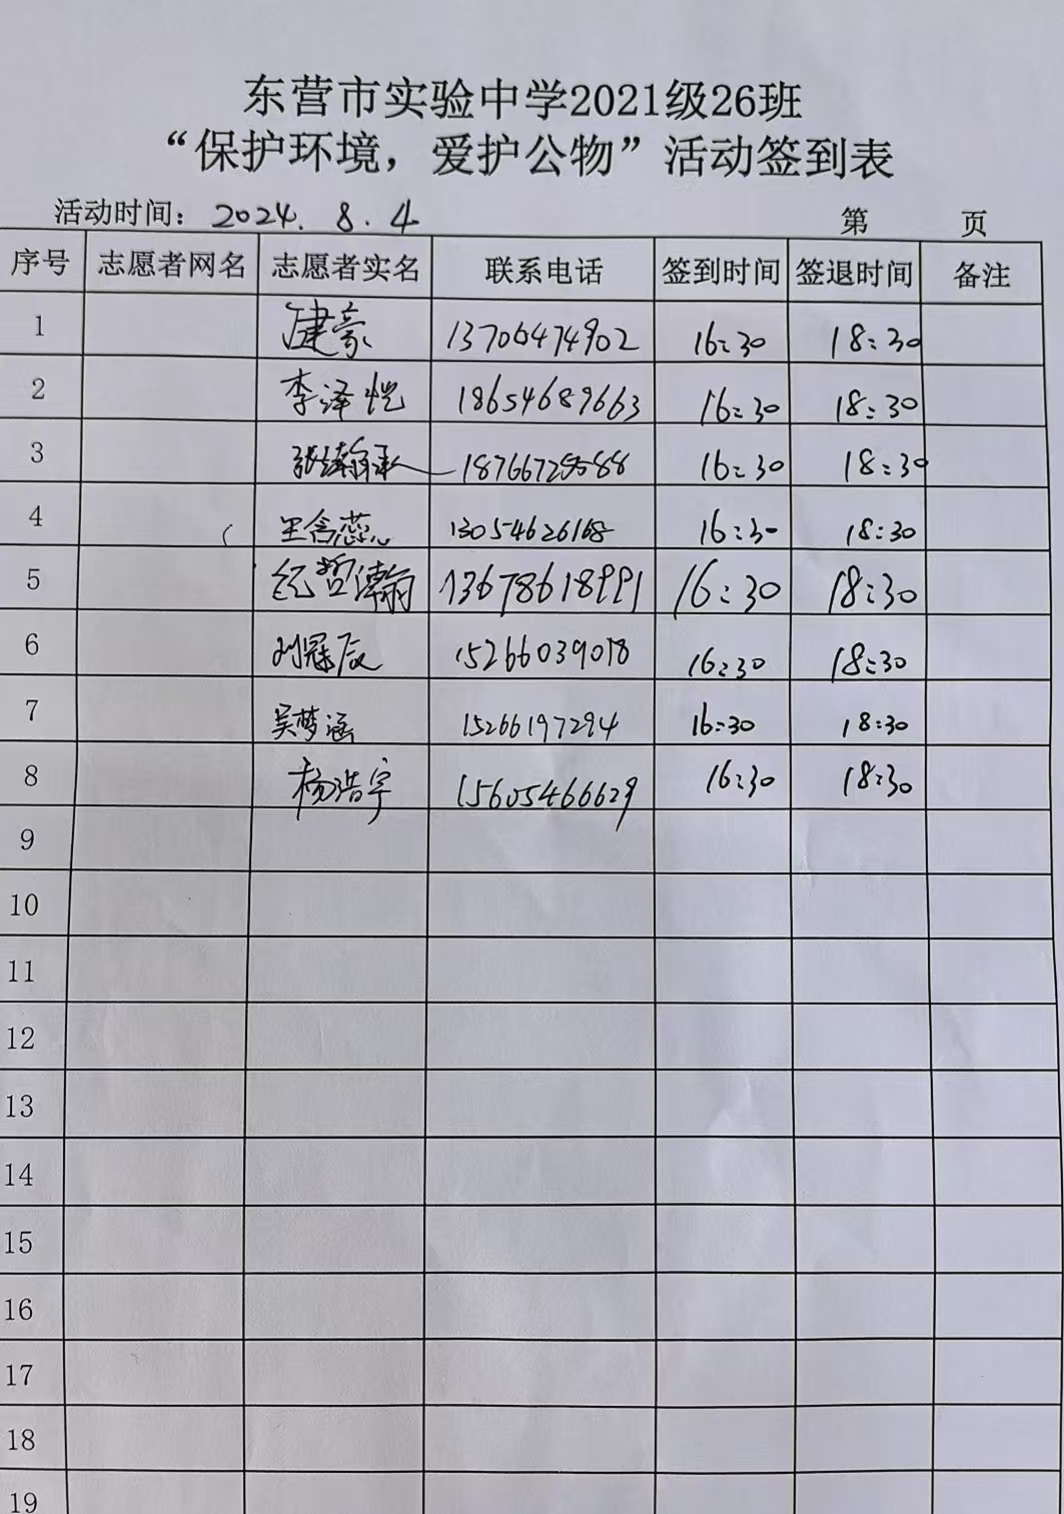 东营市实验中学2021级26班
“保护环境，爱护公物”活动签到表
活动时间：2024.8.4 第 页
序号 志愿者网名 志愿者实名 联系电话 签到时间 签退时间 备注
1 健豪 13706474902 16:30 18:30
2 李泽恺 18654689663 16:30 18:30
3 张瀚承 16:30 18:30
4 王含蕊 13054626168 16:30 18:30
5 纪哲瀚 13678618991 16:30 18:30
6 刘冠辰 15266039078 16:30 18:30
7 吴梦涵 15266197294 16:30 18:30
8 杨浩宇 15605466629 16:30 18:30
9
10
11
12
13
14
15
16
17
18
19